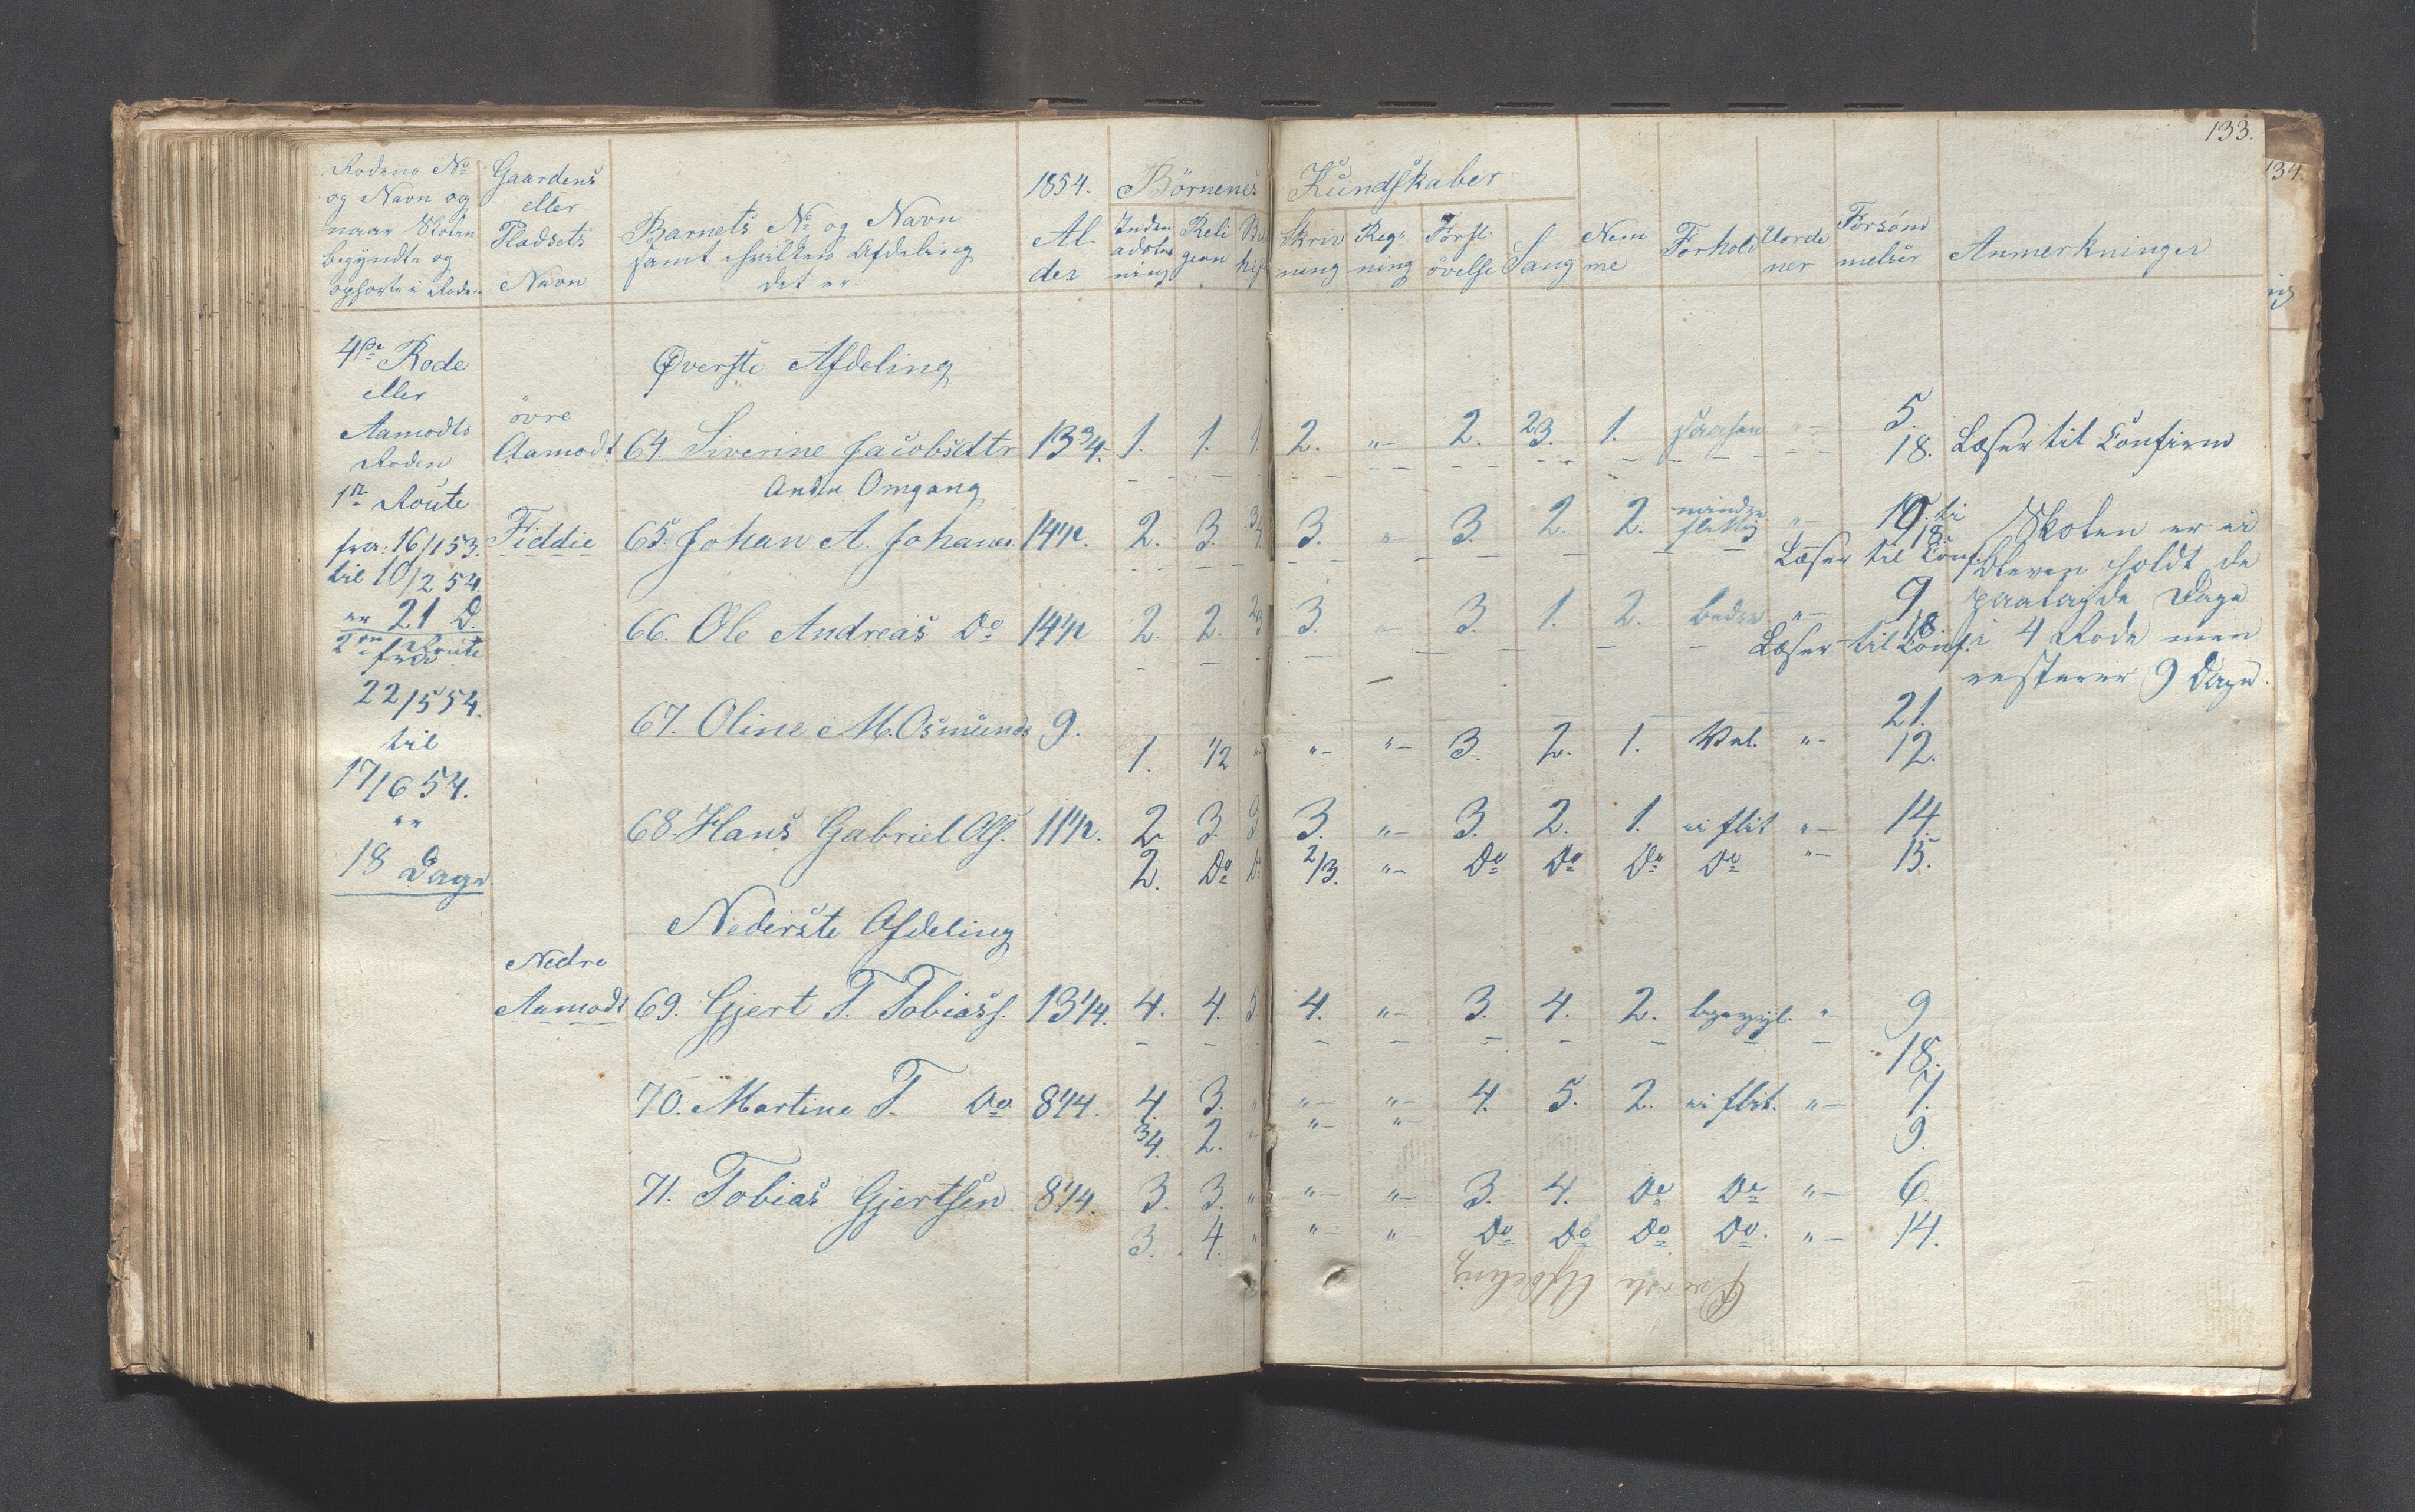 133.
134.
Rodens No Gaardens 1854. Börnenes Kundskaber
og Navn og eller
naar Skolen Pladsets Barnets No og Navn Al- Inden Reli Skriv Reg- Forst. Sang Nem Forhold Uorde Forsöm Anmerkninger
begyndte og samt hvilken Afdeling der adslæs gion ning ning övelse me ner melser
ophorte i Roden Navn det er ning
4de Rode Øverste Afdeling
eller
Aamodts övre 5.
Roden Aamodt 64. Siverine Jacobsdtr 13 3/4. 1. 1. 1 2. "- 2. 23. 1. "- 18. Læser til Confirm
1te Route Anden Omgang
fra: 16/1 53. Fiddie 65. Johan A. Johanes. 14 1/2. 2. 3. 3/4 3. "- 3. 2. 2. mindre flittig "- 18. Skolen er ei
til 10/2 54. Læser til Conf. bleven holdt de
er 21 D. 9 paalagde Dage
2den Route 66. Ole Andreas Do 14 1/2 2. 2. 2/3 3. "- 3. 1. 2. bedre "- 18 i 4 Rode men
fra Læser til Conf. resterer 9 Dage.
22/5 54. 67. Oline M. Osmunds 9. 21.
til 1. 1/2 "- "- "- 3. 2. 1. Vel. "- 12.
17/6 54.
er 68. Hans Gabriel Ols. 11 1/2. 2. 3. 3 3. "- 3. 2. 1. ei flit "- 14.
18 Dage. 2. Do D. 2/3. "- Do Do Do Do "- 15.
Nederste Afdeling
Nedre
Aamodt 69. Gjert T. Tobiass. 13 1/4. 4. 4. 5 4. "- 3. 4. 2. "- 9
18.
70. Martine T. Do 8 1/4. 4. 3. " "- "- 4. 5. 2. ei flit. "- 7.
3/4. 2. "- "- "- 9.
71. Tobias Gjertsen 8 1/4. 3. 3. " "- "- 3. 4. Do Do "- 6.
3. 4. " "- "- Do Do Do Do. "- 14.
Øverste Afdeling